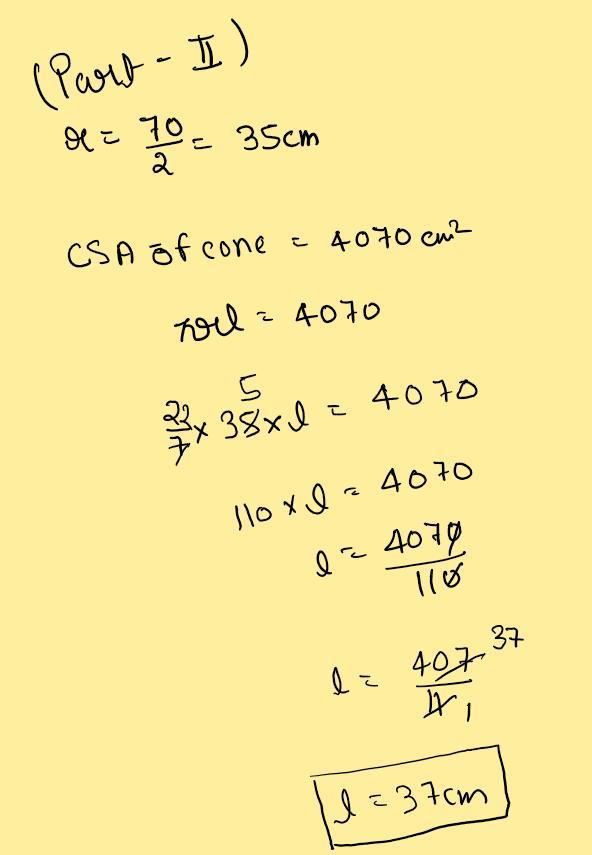 (Part - II)
r = 70/2 = 35cm
CSA of cone = 4070 cm²
πrl = 4070
22/7 × 35 5 × l = 4070
110 × l = 4070
l = 4070/110
l = 407/11 37 1
l = 37cm